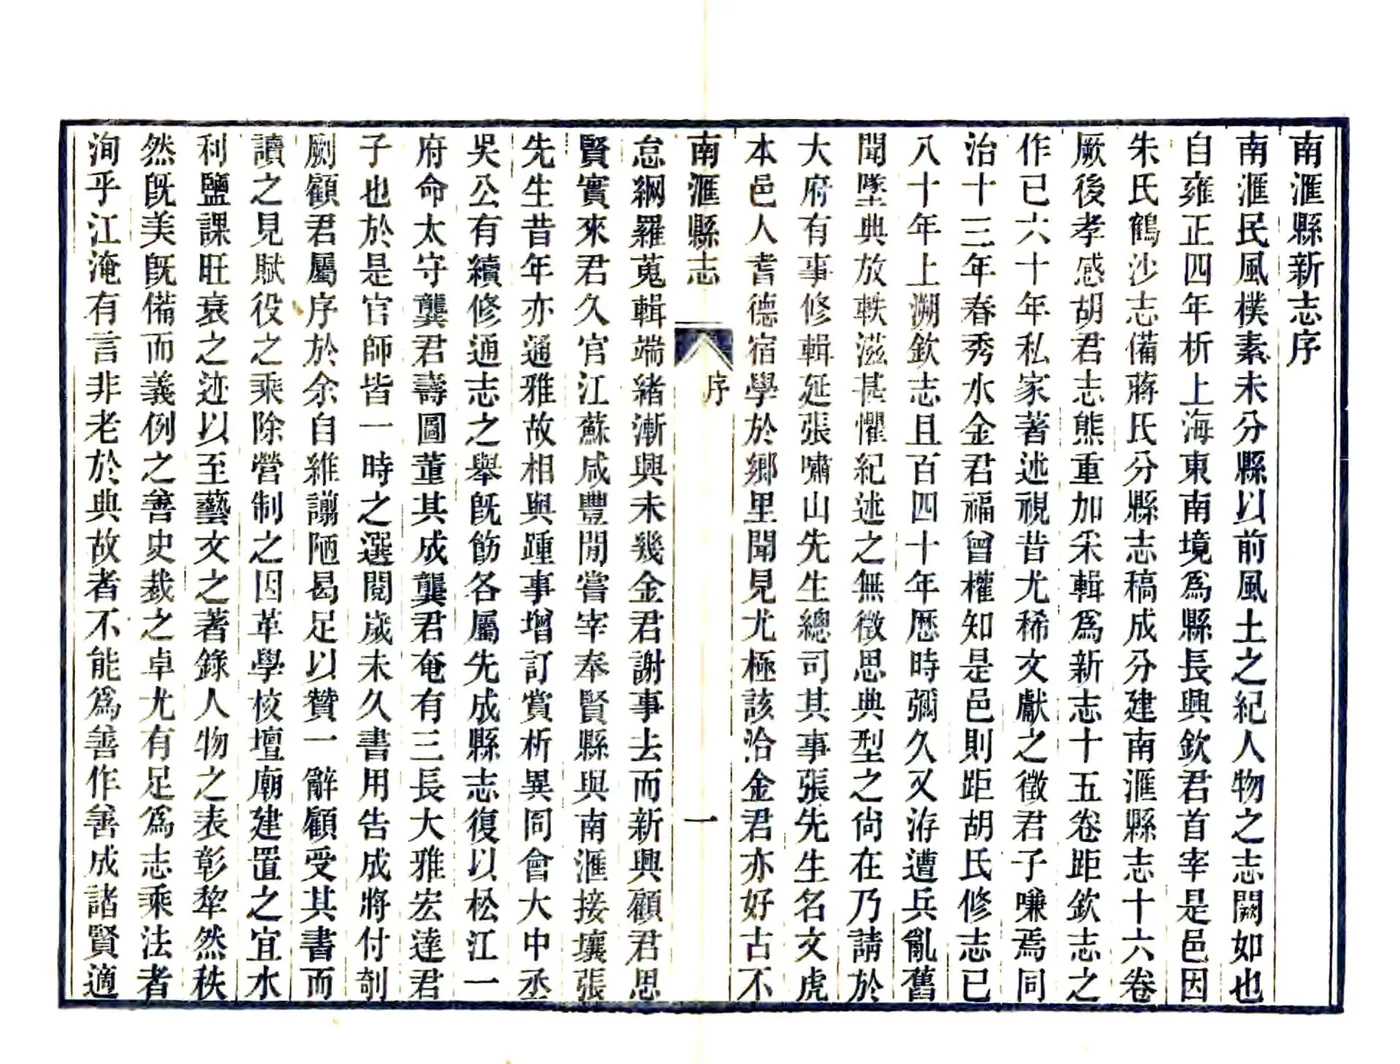 南滙縣新志序
南滙民風樸素未分縣以前風土之紀人物之志闕如也
自雍正四年析上海東南境爲縣長興欽君首宰是邑因
朱氏鶴沙志備蔣氏分縣志稿成分建南滙縣志十六卷
厥後孝感胡君志熊重加采輯爲新志十五卷距欽志之
作已六十年私家著述視昔尤稀文獻之徵君子嗛焉同
治十三年春秀水金君福曾權知是邑則距胡氏修志已
八十年上溯欽志且百四十年歷時彌久又洊遭兵亂舊
聞墜典放軼滋甚懼紀述之無徵思典型之尙在乃請於
大府有事修輯延張嘯山先生總司其事張先生名文虎
本邑人耆德宿學於鄉里聞見尤極該洽金君亦好古不
南滙縣志
序
一
怠綱羅蒐輯端緒漸興未幾金君謝事去而新興顧君思
賢實來君久官江蘇咸豐閒嘗宰奉賢縣與南滙接壤張
先生昔年亦通雅故相與踵事增訂賞析異同會大中丞
吳公有續修通志之舉旣飭各屬先成縣志復以松江一
府命太守龔君壽圖董其成龔君奄有三長大雅宏達君
子也於是官師皆一時之選閱歲未久書用告成將付剞
劂顧君屬序於余自維譾陋曷足以贊一辭顧受其書而
讀之見賦役之乘除營制之因革學校壇廟建置之宜水
利鹽課旺衰之迹以至藝文之著錄人物之表彰犂然秩
然旣美旣備而義例之善史裁之卓尤有足爲志乘法者
洵乎江淹有言非老於典故者不能爲善作善成諸賢適